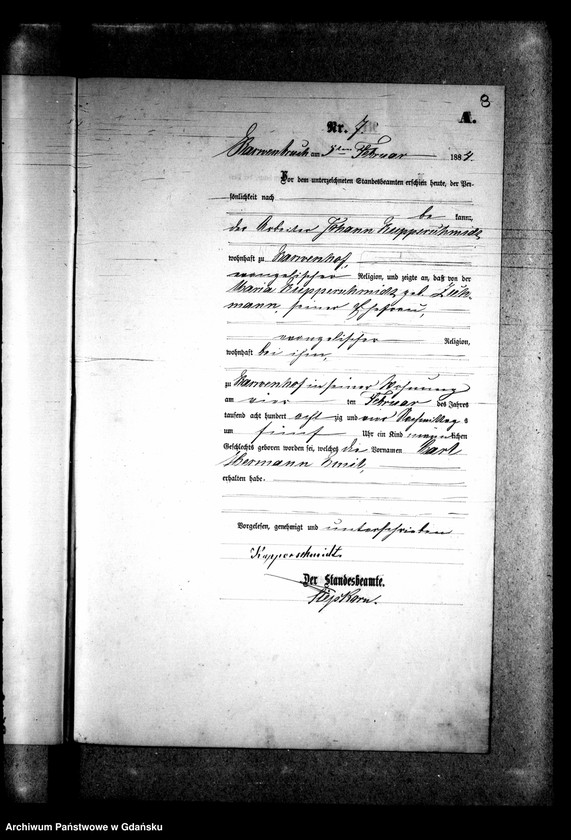 8
A.
Nr. 7.
Karwenbruch am 5ten Februar 1884.
Vor dem unterzeichneten Standesbeamten erschien heute, der Per-
sönlichkeit nach
be kannt,
der Arbeiter Johann Kupperschmidt,
wohnhaft zu Karwenhof,
evangelischer Religion, und zeigte an, daß von der
Maria Kupperschmidt geb.
mann, seiner Ehefrau,
evangelischer Religion,
wohnhaft bei ihm,
zu Karwenhof in seiner Wohnung
am vier ten Februar des Jahres
tausend acht hundert acht zig und vier Vormittags
um fünf Uhr ein Kind männlichen
Geschlechts geboren worden sei, welches die Vornamen Karl
Hermann Emil,
erhalten habe.
Vorgelesen, genehmigt und unterschrieben
Kupperschmidt.
Der Standesbeamte.
Archiwum Państwowe w Gdańsku